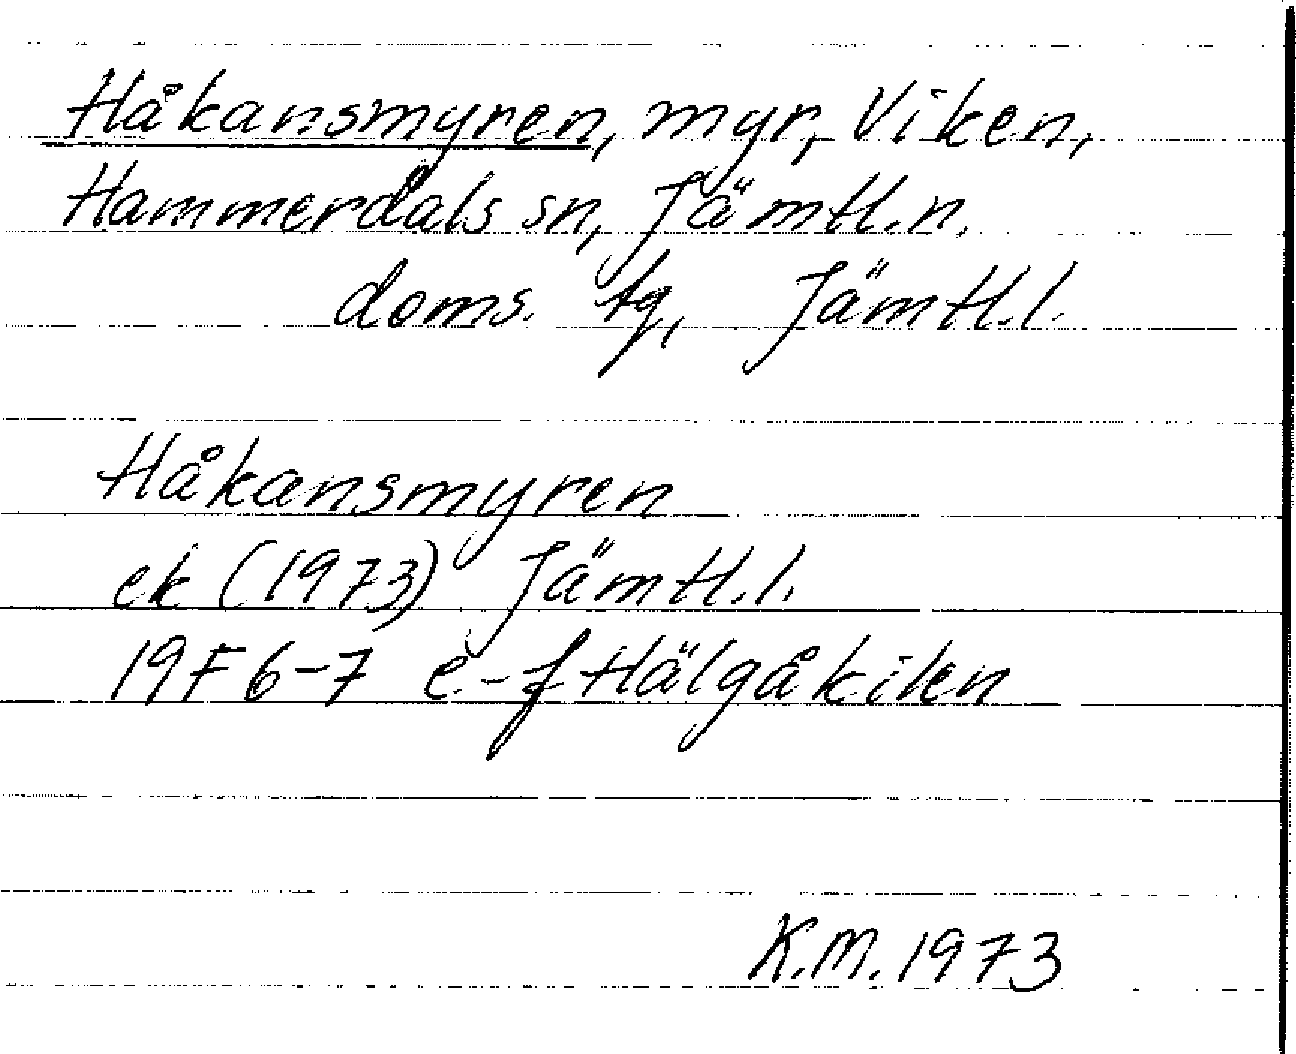 Håkansmyren, myr, Viken,
Hammerdals sn, Jämtl.n.
doms. tg, Jämtl.l.
Håkansmyren
ek (1973) Jämtl.l.
19F 6-7 e-f Hälgåkilen
K.M. 1973